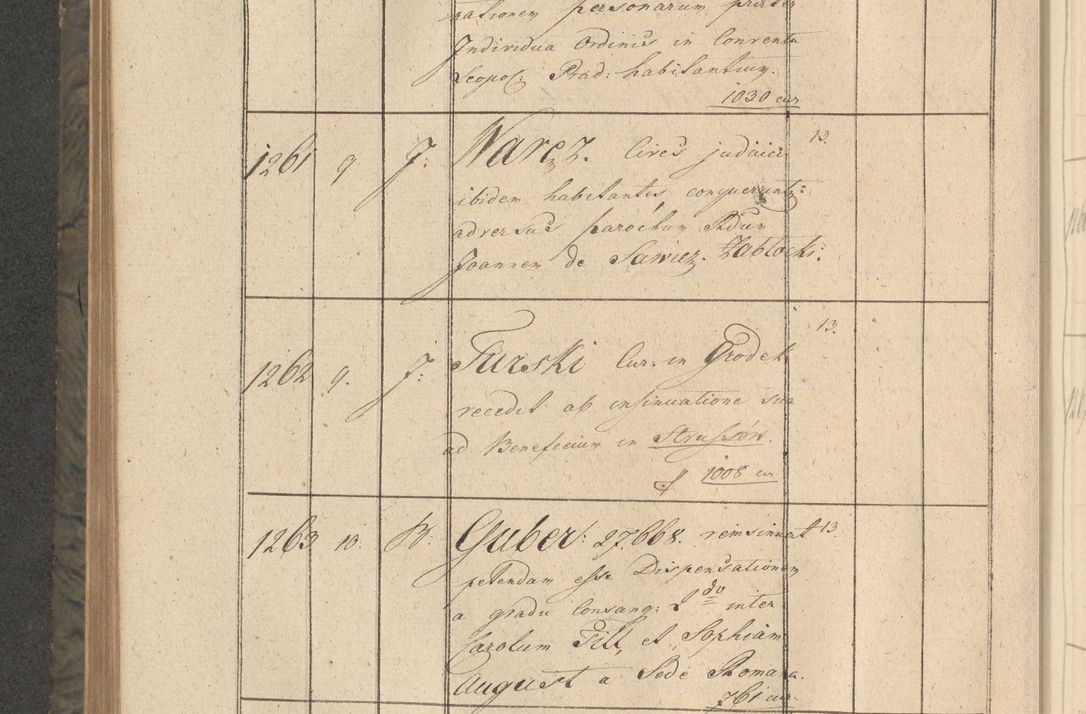 rationem personarum praeter
Individua Ordinis in Conventu
Leopol: Praed: habitantium.
1030 cur
1261 9 J: Narcz. Cives judaici 13.
ibidem habitantes, conqueruntr:
adversus parochum Rdum
Joannem de Sawicz. Zabłocki.
1262 9. J: Turski Cur. in Grodek 13.
recedit ab insinuatione sua
ad Beneficium in Strussów.
1008 cur
1263 10. B. Guber: 27668. reinsinuat 13
petendam esse Dispensationem
a gradu Consang: 2do inter
Carolum Till et Sophiam
August a Sede Romana.
761 cur